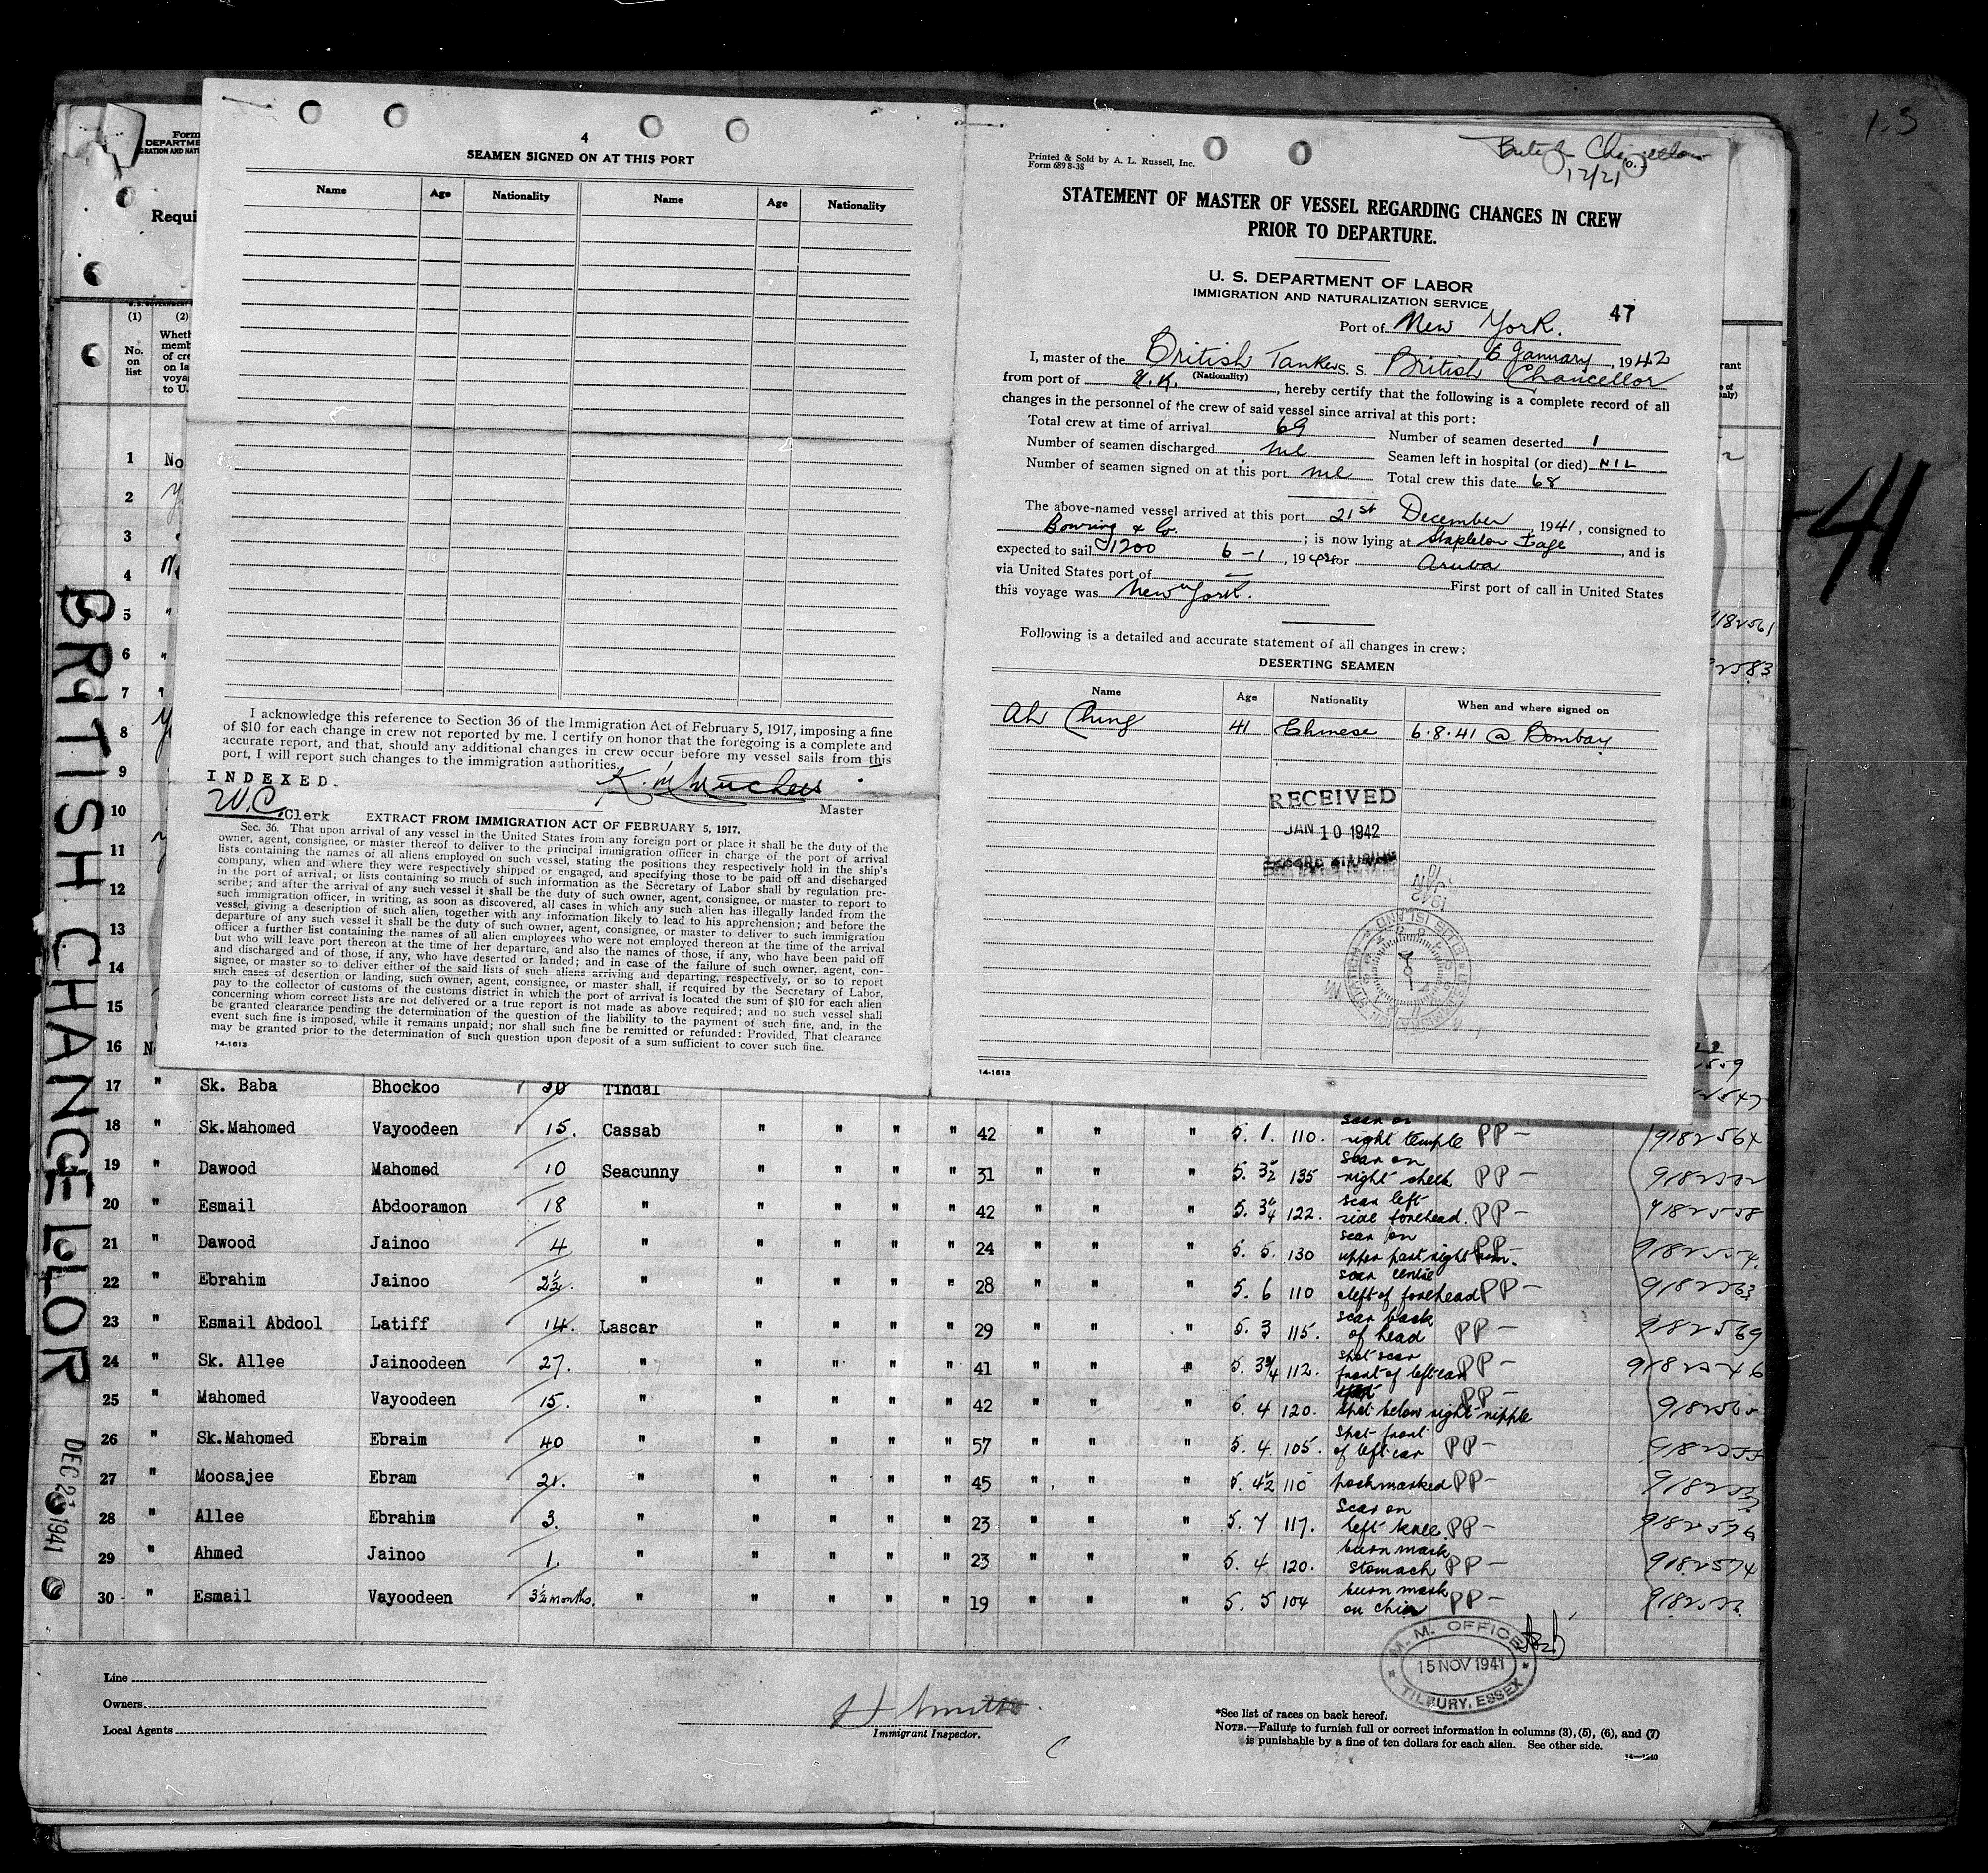 4
SEAMEN SIGNED ON AT THIS PORT
Name Age Nationality Name Age Nationality
I acknowledge this reference to Section 36 of the Immigration Act of February 5, 1917, imposing a fine
of $10 for each change in crew not reported by me. I certify on honor that the foregoing is a complete and
accurate report, and that, should any additional changes in crew occur before my vessel sails from this
port, I will report such changes to the immigration authorities.
INDEXED.
W.C. Clerk
Master
EXTRACT FROM IMMIGRATION ACT OF FEBRUARY 5, 1917.
Sec. 36. That upon arrival of any vessel in the United States from any foreign port or place it shall be the duty of the
owner, agent, consignee, or master thereof to deliver to the principal immigration officer in charge of the port of arrival
lists containing the names of all aliens employed on such vessel, stating the positions they respectively hold in the ship's
company, when and where they were respectively shipped or engaged, and specifying those to be paid off and discharged
in the port of arrival; or lists containing so much of such information as the Secretary of Labor shall by regulation pre-
scribe; and after the arrival of any such vessel it shall be the duty of such owner, agent, consignee, or master to report to
such immigration officer, in writing, as soon as discovered, all cases in which any such alien has illegally landed from the
vessel, giving a description of such alien, together with any information likely to lead to his apprehension; and before the
departure of any such vessel it shall be the duty of such owner, agent, consignee, or master to deliver to such immigration
officer a further list containing the names of all alien employees who were not employed thereon at the time of the arrival
but who will leave port thereon at the time of her departure, and also the names of those, if any, who have been paid off
and discharged and of those, if any, who have deserted or landed; and in case of the failure of such owner, agent, con-
signee, or master so to deliver either of the said lists of such aliens arriving and departing, respectively, or so to report
such cases of desertion or landing, such owner, agent, consignee, or master shall, if required by the Secretary of Labor,
pay to the collector of customs of the customs district in which the port of arrival is located the sum of $10 for each alien
concerning whom correct lists are not delivered or a true report is not made as above required; and no such vessel shall
be granted clearance pending the determination of the question of the liability to the payment of such fine, and, in the
event such fine is imposed, while it remains unpaid; nor shall such fine be remitted or refunded: Provided, That clearance
may be granted prior to the determination of such question upon deposit of a sum sufficient to cover such fine.
14-1613
Printed & Sold by A. L. Russell, Inc.
Form 689 8-38
British Chancellor
12/21
STATEMENT OF MASTER OF VESSEL REGARDING CHANGES IN CREW
PRIOR TO DEPARTURE.
U. S. DEPARTMENT OF LABOR
IMMIGRATION AND NATURALIZATION SERVICE
47
Port of New York.
6 January, 1942
I, master of the British Tanker S. S. British Chancellor
(Nationality)
from port of U.K., hereby certify that the following is a complete record of all
changes in the personnel of the crew of said vessel since arrival at this port:
Total crew at time of arrival 69 Number of seamen deserted 1
Number of seamen discharged nil Seamen left in hospital (or died) NIL
Number of seamen signed on at this port nil Total crew this date 68
The above-named vessel arrived at this port 21st December, 1941, consigned to
Bowring & Co.; is now lying at Stapleton, and is
expected to sail 1200 6-1, 1942 for Aruba
via United States port of First port of call in United States
this voyage was New York.
Following is a detailed and accurate statement of all changes in crew:
DESERTING SEAMEN
Name Age Nationality When and where signed on
Ah Ching 41 Chinese 6.8.41 @ Bombay
RECEIVED
JAN 10 1942
14-1613
1.S
41
BRITISH CHANCELLOR
DEC 21 1941
Form
Requi
(1) (2)
No. on list
1 No
2
3
4
5
6
7
8
9
10
11
12
13
14
15
16
17 " Sk. Baba Bhockoo 30 Tindal
18 " Sk.Mahomed Vayoodeen 15. Cassab " " " " 42 " " " 5. 1. 110. scar on right temple PP- 9182564
19 " Dawood Mahomed 10 Seacunny " " " " 31 " " " 5. 3½ 135 scar on right cheek PP-
20 " Esmail Abdooramon 18 " " " " " 42 " " " 5. 3¼ 122. scar left side forehead. PP-
21 " Dawood Jainoo 4 " " " " " 24 " " " 5. 5. 130 scar on upper part right arm. PP-
22 " Ebrahim Jainoo 2½. " " " " " 28 " " " 5. 6 110 scar centre left of forehead PP- 9182563
23 " Esmail Abdool Latiff 14. Lascar " " " " 29 " " " 5. 3 115. scar back of head PP- 9182569
24 " Sk. Allee Jainoodeen 27. " " " " " 41 " " " 5. 3¾ 112. spot scar front of left ear PP- 9182546
25 " Mahomed Vayoodeen 15. " " " " " 42 " " " 5. 4 120. spot below right nipple PP-
26 " Sk.Mahomed Ebraim 40 " " " " " 57 " " " 5. 4. 105. spot front of left ear PP-
27 " Moosajee Ebram 21. " " " " " 45 " " " 5. 4½ 110 pockmarked PP-
28 " Allee Ebrahim 3. " " " " " 23 " " " 5. 7 117. Scar on left knee. PP-
29 " Ahmed Jainoo 1. " " " " " 23 " " " 5. 4 120. burn mark stomach PP- 9182574
30 " Esmail Vayoodeen 3½ months. " " " " " 19 " " " 5. 5 104 burn mark on chin PP-
M. M. OFFICE
15 NOV 1941
TILBURY, ESSEX
Line
Owners
Local Agents
Immigrant Inspector.
*See list of races on back hereof.
NOTE.—Failure to furnish full or correct information in columns (3), (5), (6), and (7)
is punishable by a fine of ten dollars for each alien. See other side.